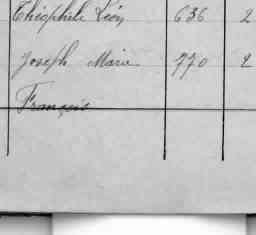 Théophile Léon 636 2
Joseph Marie 770 2
François